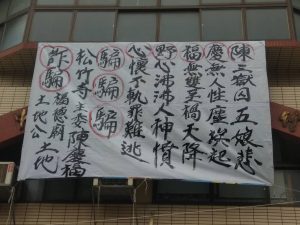 陳三獄囚五娘悲
慶無人性座災起
福無雙至禍天降
野心沸沸人神憤
心懷不軌罪難逃
騙騙騙
松竹寺主委陳慶福
詐騙福德廟土地公土地